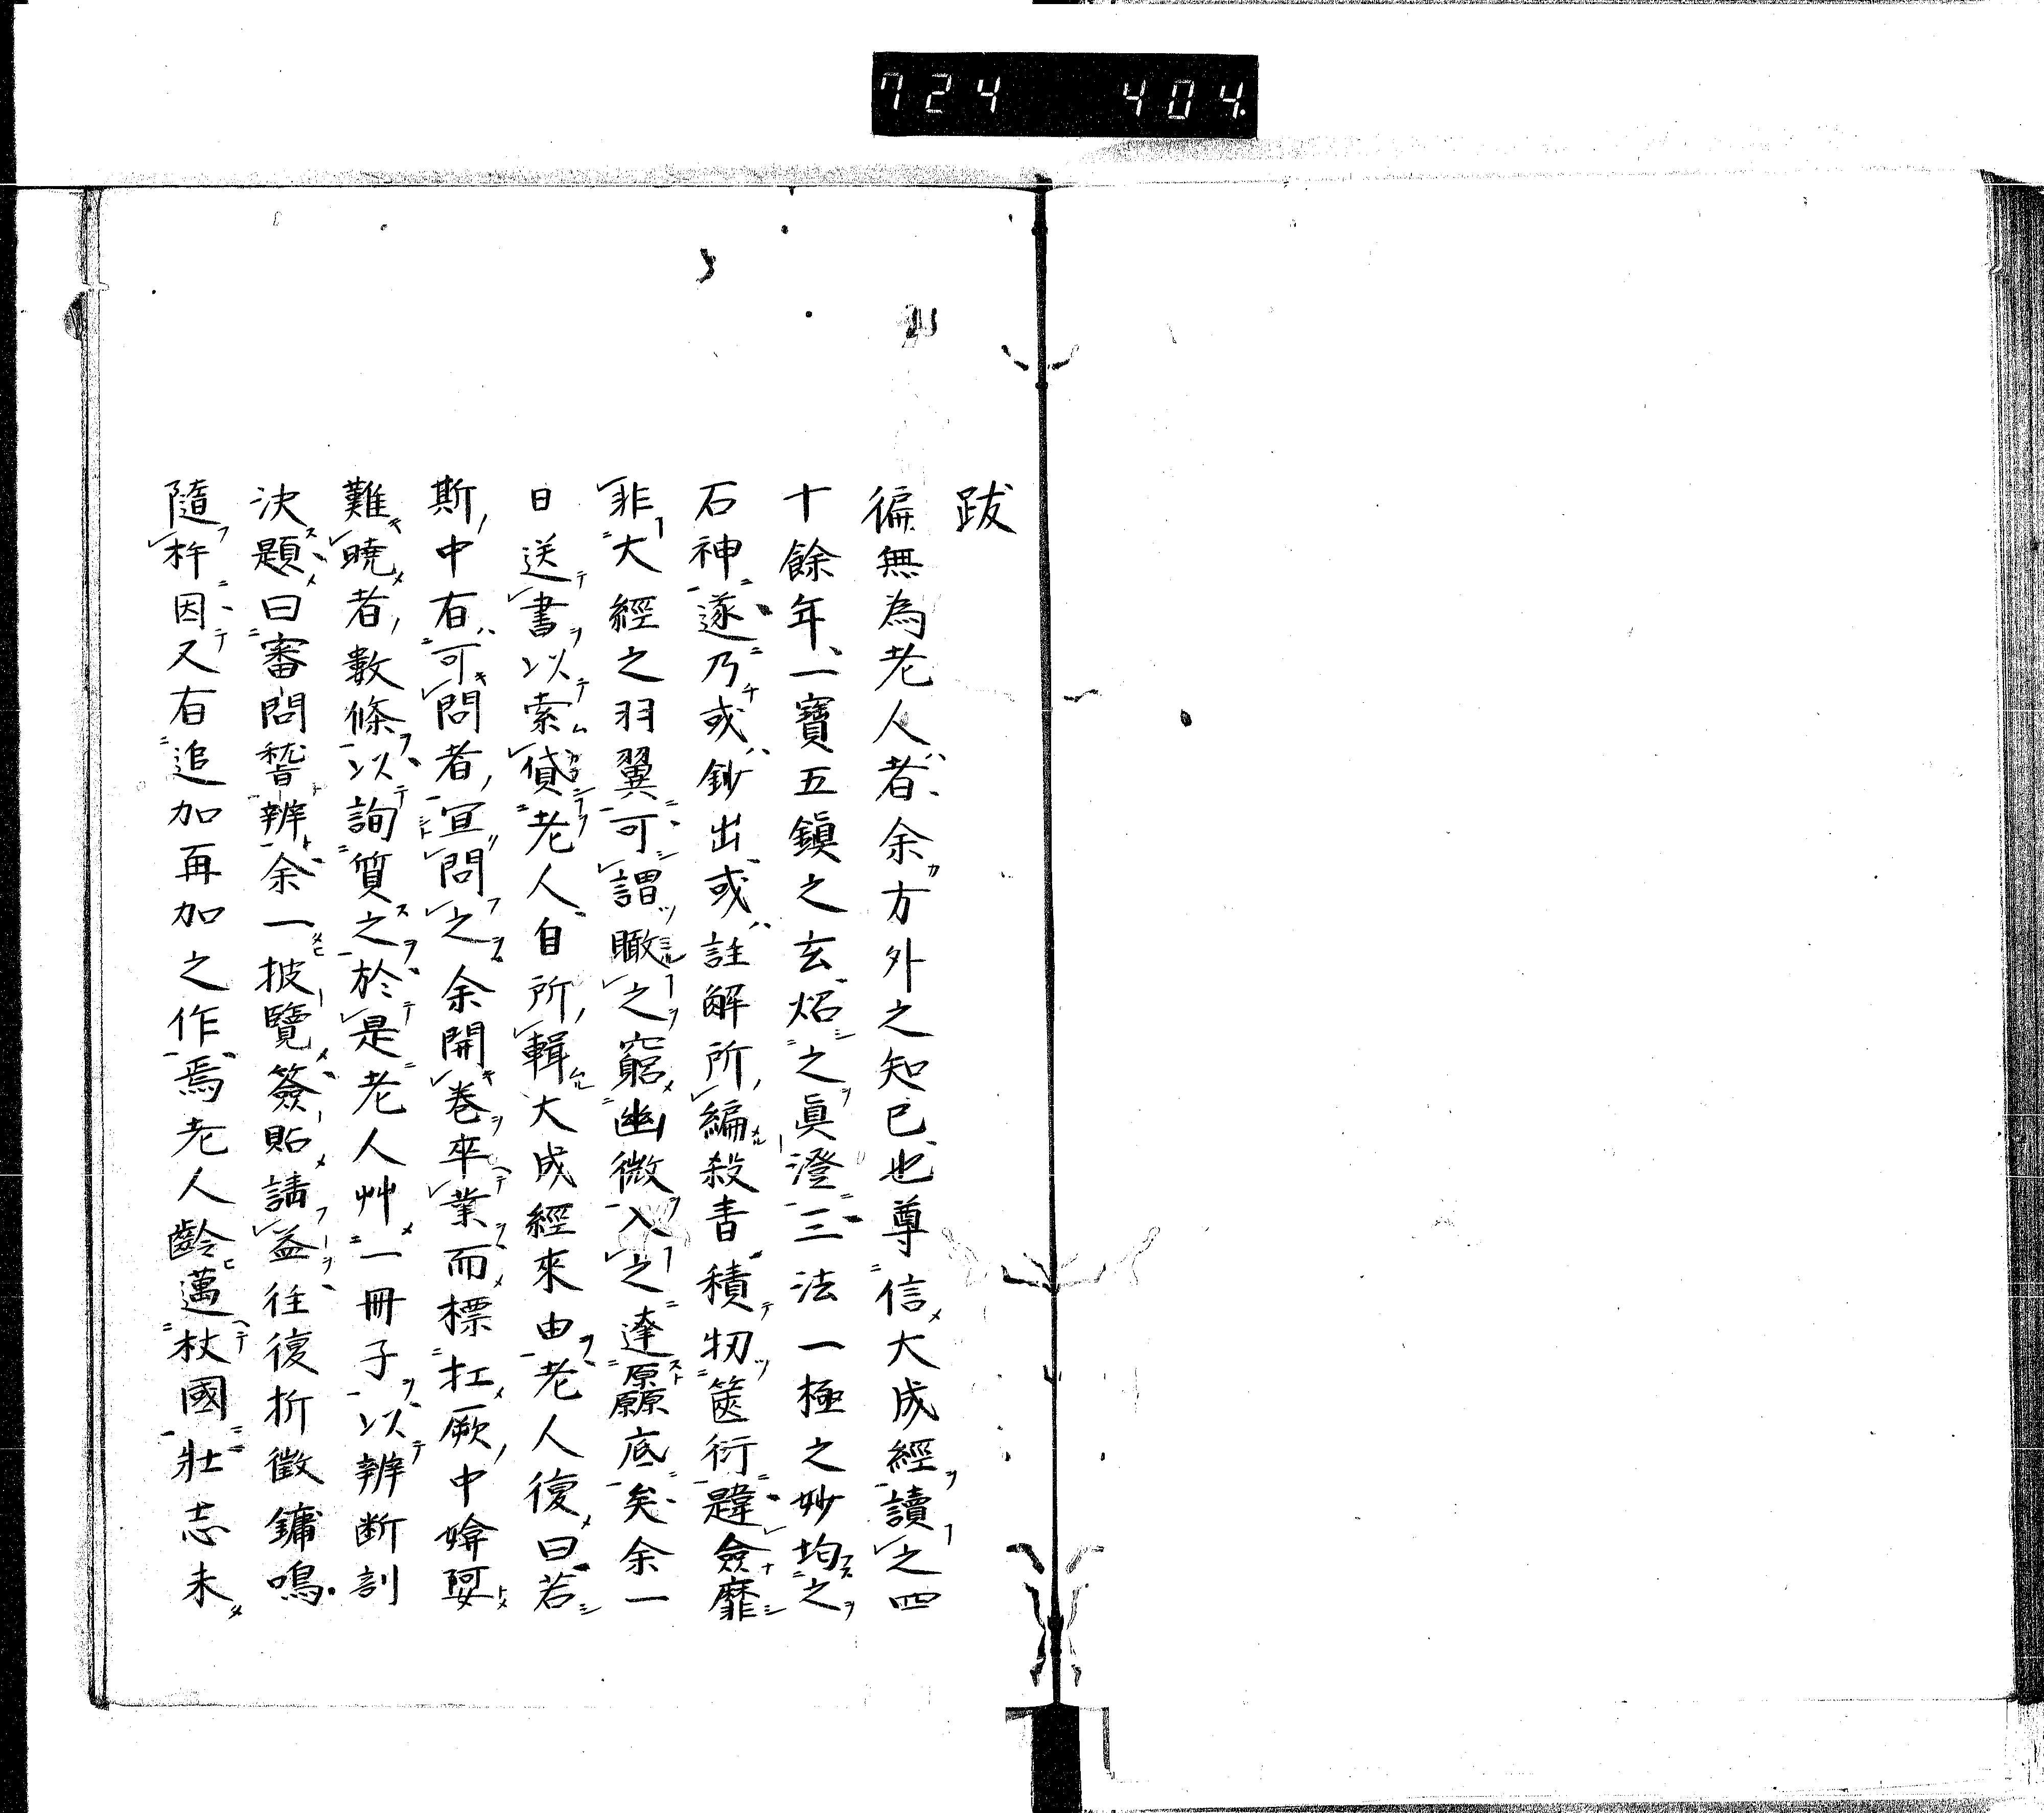 724 404
跋
徧無為老人者余方外之知已也尊信大成經讀之四
十餘年一寶五鎭之玄炤之眞澄三法一極之妙均之
石神遂乃或鈔出或註解所編殺青積牣篋衍韙僉靡
非大經之羽翼可謂瞰之窮幽微入之達原願底矣余一
日送書以索貸老人自所輯大成經來由老人復曰若
斯中有可問者宣問之余開卷卒業而標扛厥中媕娿
難曉者數條以詢質之於是老人艸一冊子以辨断剖
決題曰審問嵇辨余一披覽簽貼請益往復折徵鏞鳴
隨杵因又有追加再加之作焉老人齡邁杖國壯志未